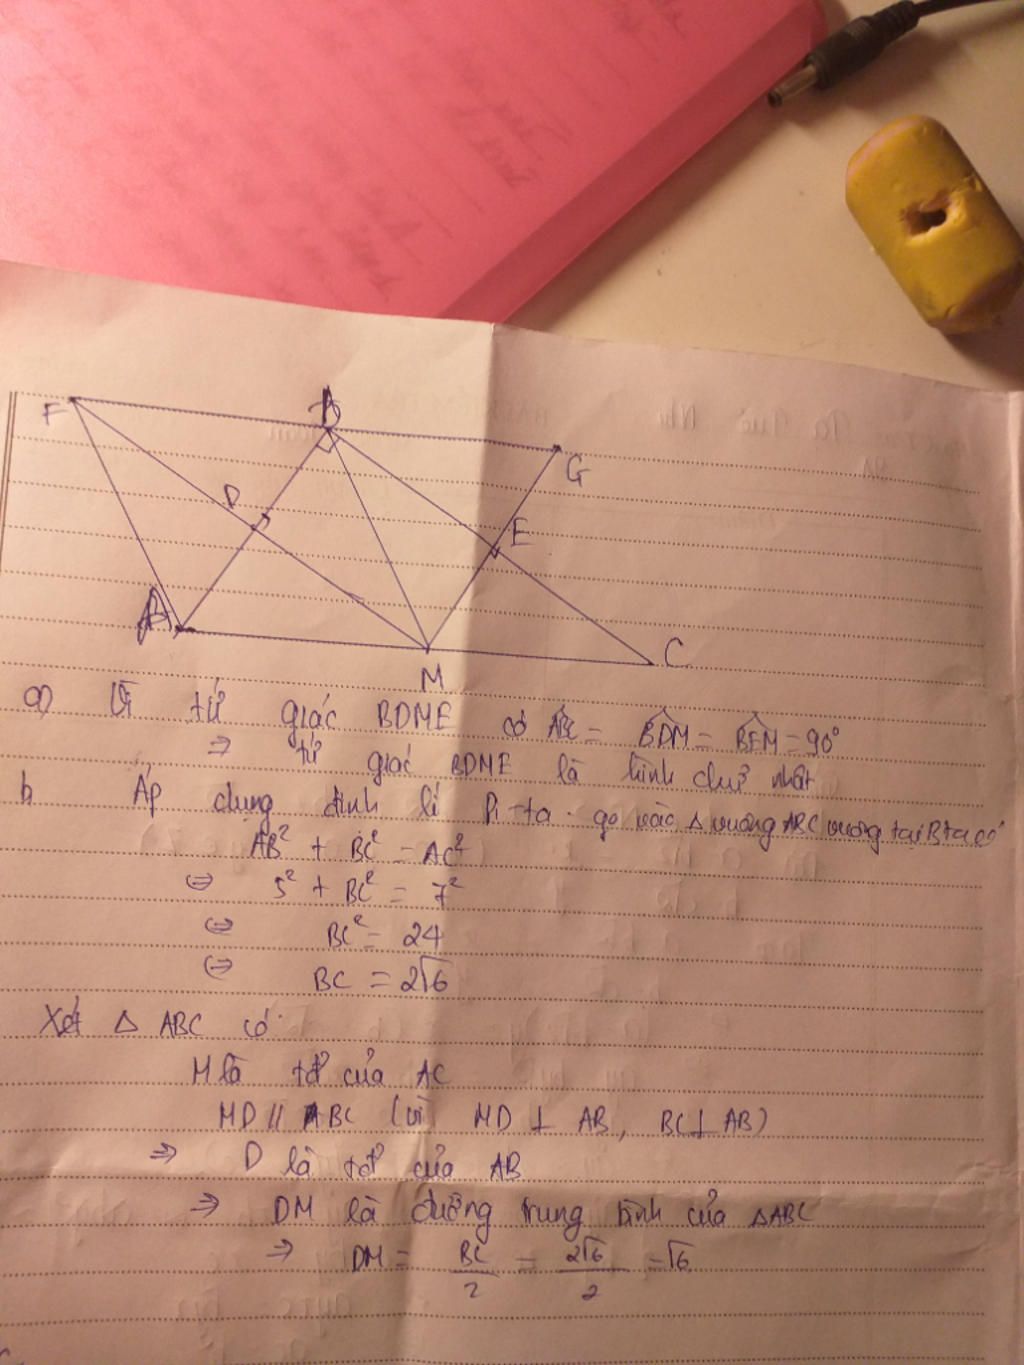 F
B
G
D
E
A
M
C
a) Vì tứ giác BDME có ABC = BDM = BEM = 90°
⇒ tứ giác BDME là hình chữ nhật
b Áp dụng định lí Pi-ta-go vào Δ vuông ABC vuông tại B ta có
AB² + BC² = AC²
⇔ 5² + BC² = 7²
⇔ BC² = 24
⇔ BC = 2√6
Xét Δ ABC có:
M là tđ của AC
MD // BC (vì MD ⊥ AB, BC ⊥ AB)
⇒ D là tđ của AB
⇒ DM là đường trung bình của ΔABC
⇒ DM = BC/2 = 2√6/2 = √6